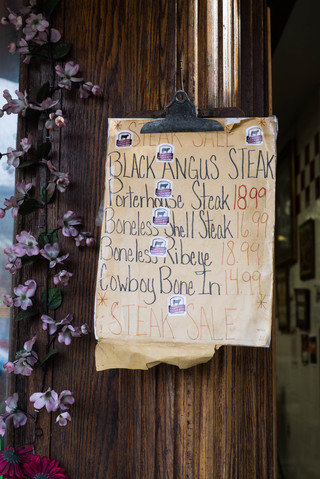 STEAK SALE
BLACK ANGUS STEAK
Porterhouse Steak 18.99
Boneless Shell Steak 16.99
Boneless Ribeye 18.99
Cowboy Bone In 14.99
STEAK SALE